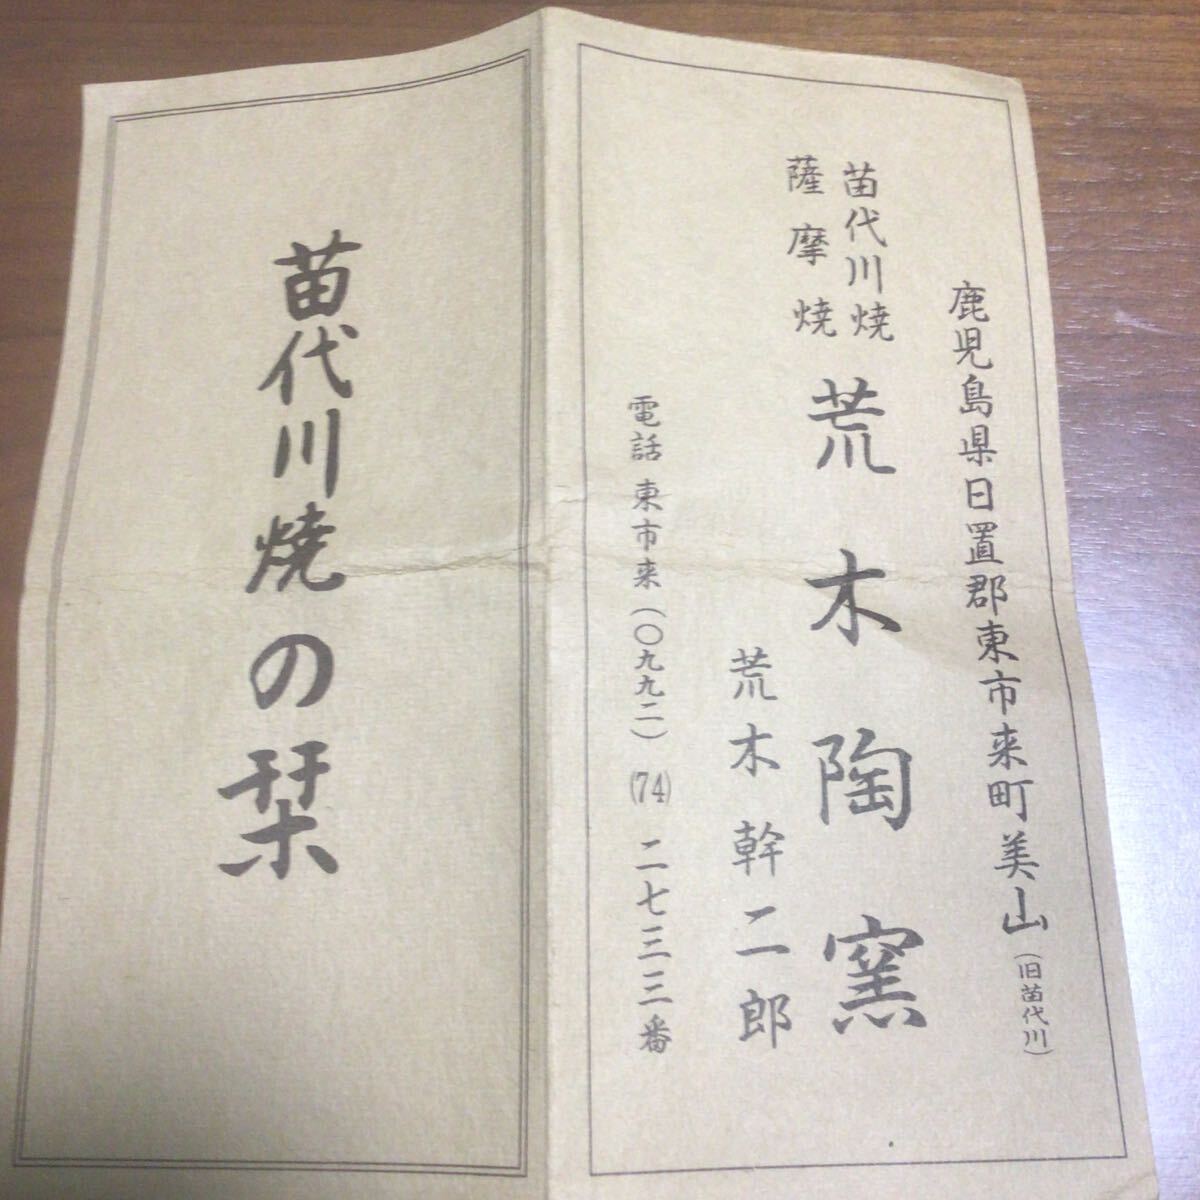 鹿児島県日置郡東市来町美山(旧苗代川)
苗代川焼
薩摩焼
荒木陶窯
荒木幹二郎
電話 東市来(〇九九二)(74)二七三三番
苗代川焼の栞